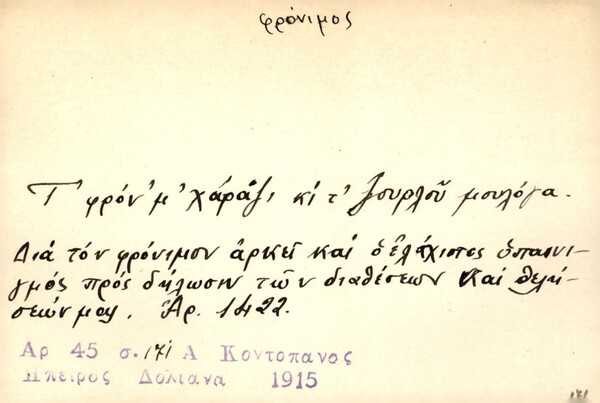 φρόνιμος
Τ' φρόν'μ' χάραξι, κί τ' ζουρλοῦ μουλόγα.
Διά τόν φρόνιμον ἀρκεῖ καί ὁ ἐλάχιστος ὑπαινι-
γμός πρός δήλωσιν τῶν διαθέσεων καί θελή-
σεών μας. Ἀρ. 1422.
Αρ 45 σ. 171 Α Κοντοπανος
Ηπειρος Δολιανα 1915
181